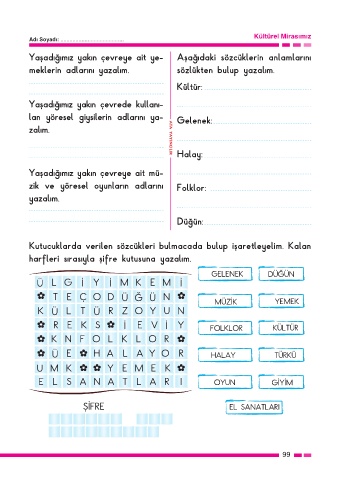 Adı Soyadı: ..............................
Kültürel Mirasımız
Yaşadığımız yakın çevreye ait ye-
meklerin adlarını yazalım.
Yaşadığımız yakın çevrede kullanı-
lan yöresel giysilerin adlarını ya-
zalım.
Yaşadığımız yakın çevreye ait mü-
zik ve yöresel oyunların adlarını
yazalım.
Aşağıdaki sözcüklerin anlamlarını
sözlükten bulup yazalım.
Kültür:
Gelenek:
Halay:
Folklor:
Düğün:
Kutucuklarda verilen sözcükleri bulmacada bulup işaretleyelim. Kalan
harfleri sırasıyla şifre kutusuna yazalım.
Ü L G İ Y İ M K E M İ
T E Ç O D Ü Ğ Ü N
K Ü L T Ü R Z O Y U N
R E K S İ E V İ Y
K N F O L K L O R
Ü E H A L A Y O R
U M K Y E M E K
E L S A N A T L A R I
GELENEK DÜĞÜN
MÜZİK YEMEK
FOLKLOR KÜLTÜR
HALAY TÜRKÜ
OYUN GİYİM
EL SANATLARI
ŞİFRE
99